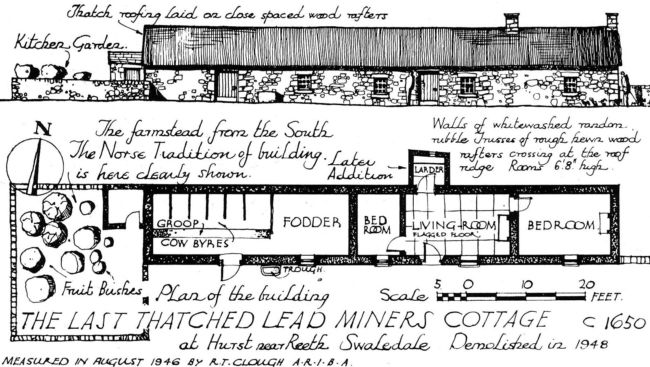 Thatch roofing laid on close spaced wood rafters
Kitchen Garden.
N
The farmstead from the South
The Norse Tradition of building
is here clearly shown.
Later
Addition
Walls of whitewashed random
rubble trusses of rough hewn wood
rafters crossing at the roof
ridge Rooms 6'8" high.
LARDER
GROOP
COW BYRES
FODDER
BED
ROOM
LIVING-ROOM
FLAGGED FLOOR
BEDROOM
TROUGH
Fruit Bushes
Plan of the building
Scale 5 0 10 20 FEET.
THE LAST THATCHED LEAD MINERS COTTAGE C 1650
at Hurst near Reeth Swaledale Demolished in 1948
MEASURED IN AUGUST 1946 BY R.T. CLOUGH A.R.I.B.A.